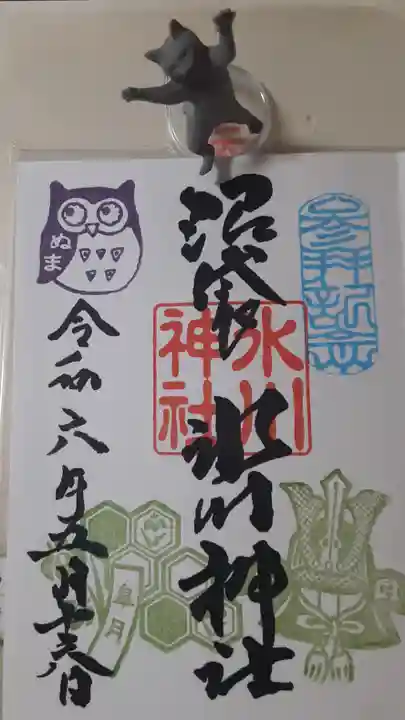 参拝記念
沼袋 氷川神社
氷川
神社
ぬま
令和六年五月十六日
皐月